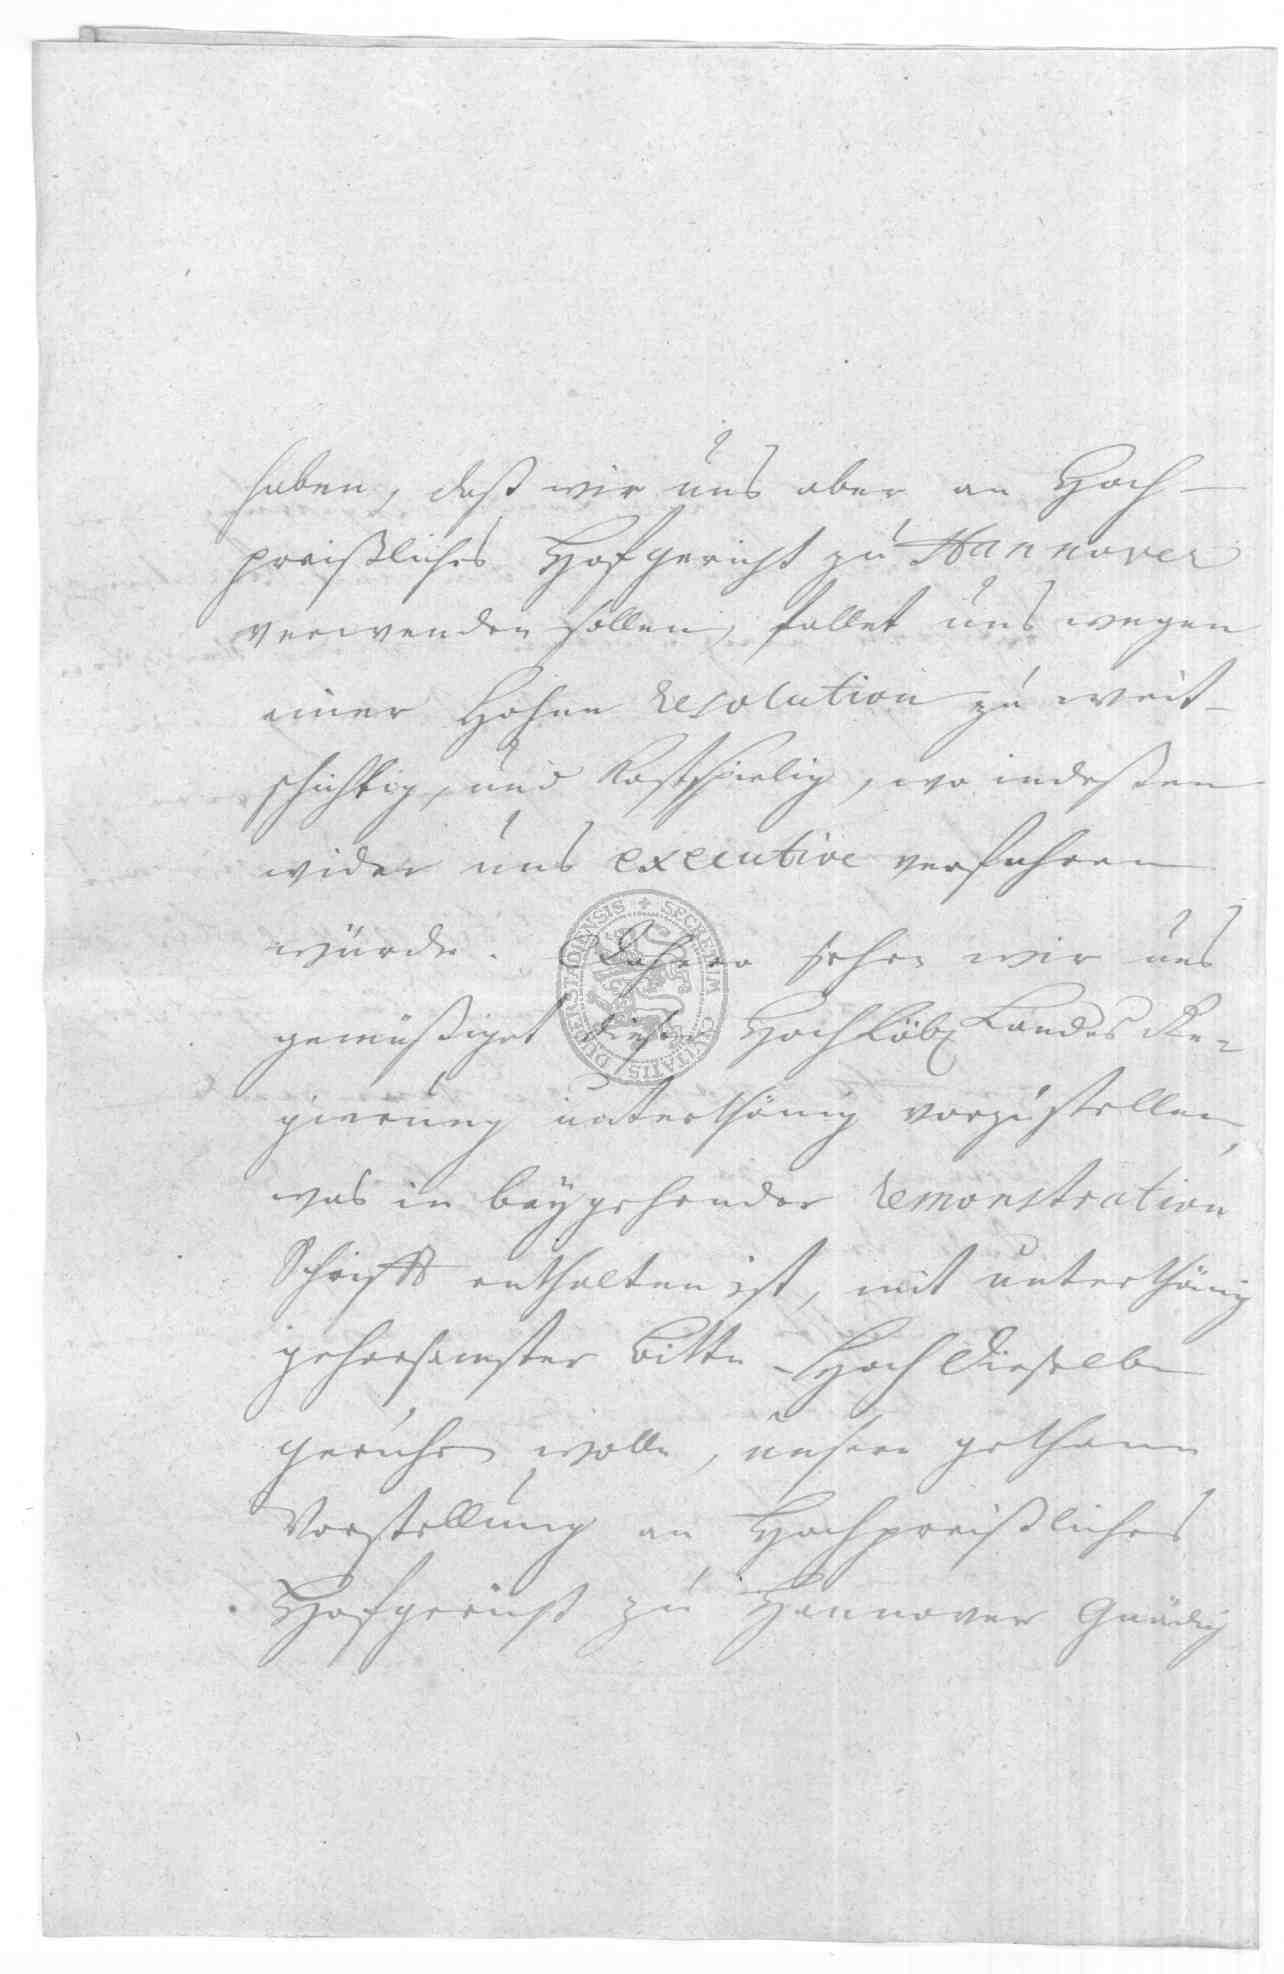 haben, daß wir uns aber an Hoch-
preißliches Hofgericht zu Hannover
verwenden sollen, fallet uns wegen
einer Hohen resolution zu weit-
schichtig, und Kostspielig, wo indeßen
wider uns executive verfahren
würde. Dahero sehen wir uns
gemüßiget dieses HochLöbl Landes Re-
gierung unterthänig vorzustellen,
was in beÿgehender remonstration
Schrifft enthalten ist, mit unterthänig
gehorsamster bitte Hoch Dieselbe
geruhen wolle, unsere gethane
Vorstellung an Hochpreißliches
Hofgericht zu Hannover Gnädig
SECRETUM CIVITATIS DUDERSTADIENSIS